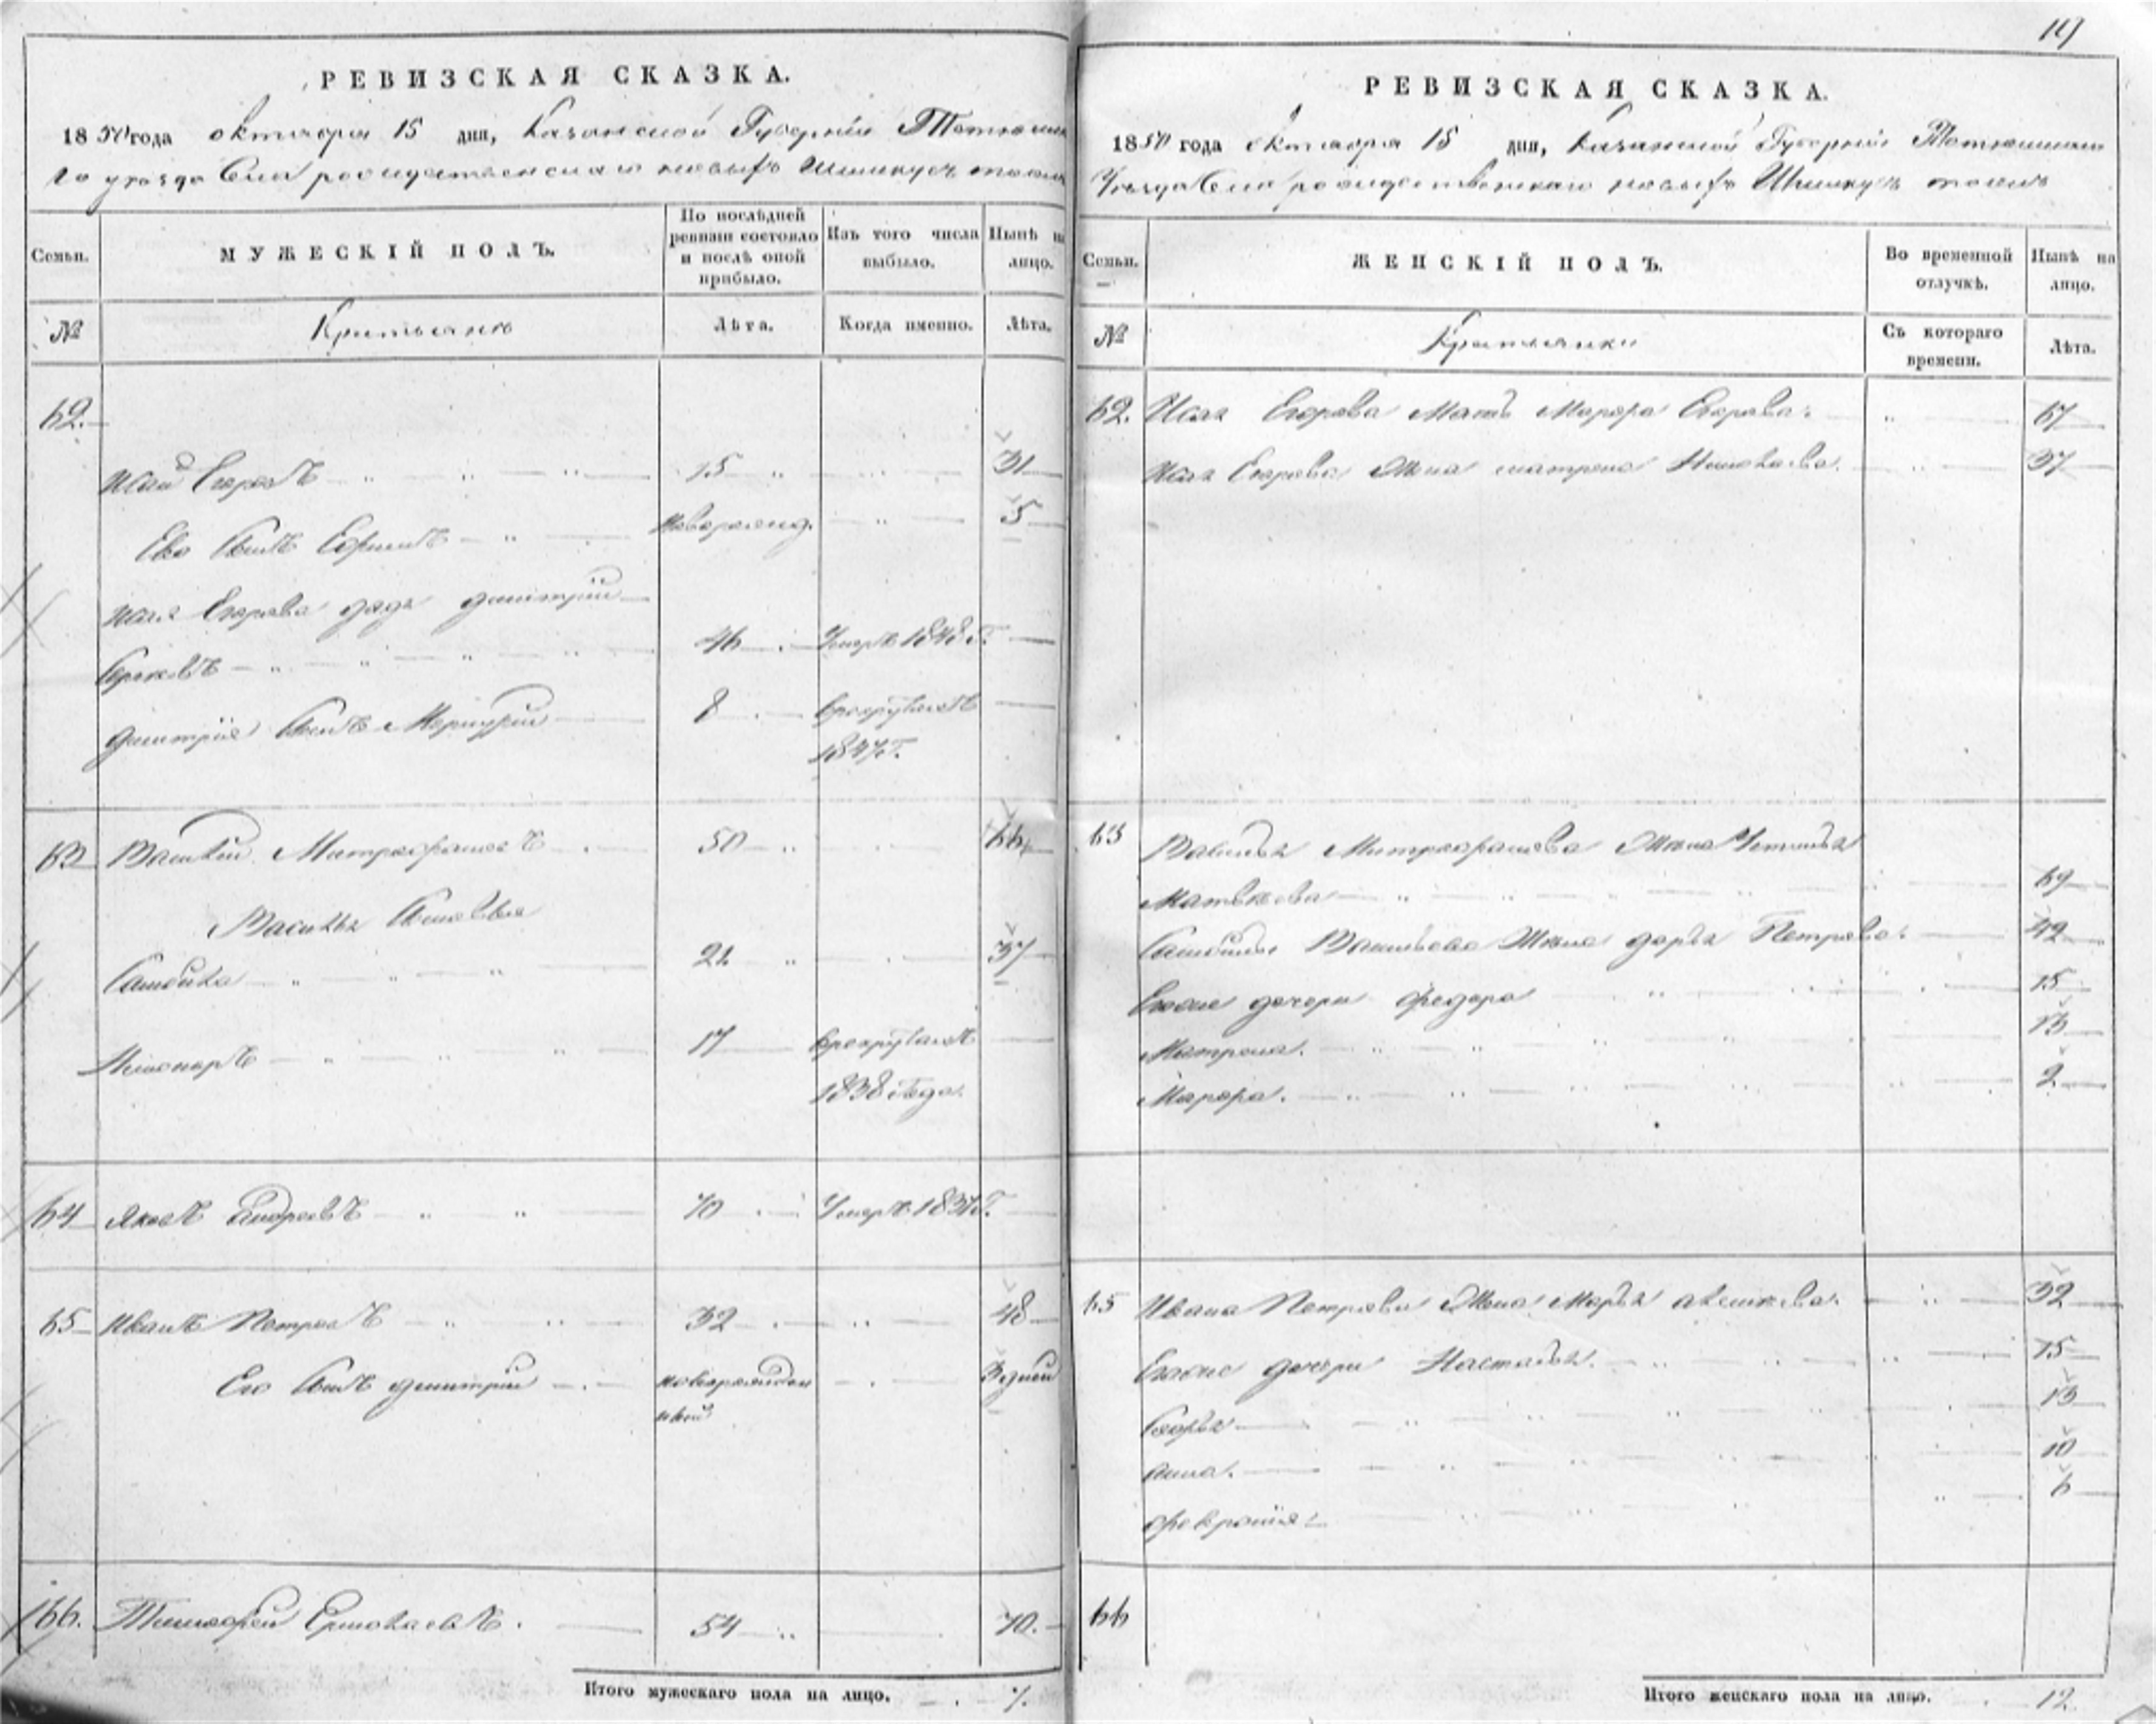 119
РЕВИЗСКАЯ СКАЗКА.
1850 года октября 15 дня, Казанской Губернiи
го уезда Села рождественскаго новыхъ
Семьи.
МУЖЕСКIЙ ПОЛЪ.
По послѣдней ревизiи состояло и послѣ оной прибыло.
Изъ того числа выбыло.
Нынѣ на лицо.
№
Крестьяне
Лѣта.
Когда именно.
Лѣта.
62.
Исай Егоровъ 15 31
Ево Сынъ Ефимъ новорожд. 5
Исая Егорова дядя дмитрiй
46 Умеръ 1848 Г.
дмитрiя Сынъ Меркурiй 8 врекрутахъ
1847 Г.
63 Василiй Митрофановъ 50 66
Василья Сыновья
Самойла 21 37
Никонаръ 17 врекрутахъ
1838 Года.
64 Яковъ Андреевъ 70 Умеръ Г.
65 Иванъ Петровъ 32 48
Его Сынъ дмитрiй новорожден 3 дней
ный
66. Тимофей Ермолаевъ. 54 70.
Итого мужескаго пола на лицо. 7.
РЕВИЗСКАЯ СКАЗКА.
1850 года октября 15 дня, Казанской Губернiи
Уезда Села рождественскаго новыхъ
Семьи.
ЖЕНСКIЙ ПОЛЪ.
Во временной отлучкѣ.
Нынѣ на лицо.
№
Крестьянки
Съ котораго времени.
Лѣта.
62. Исая Егорова Мать Марфа Егорова. 67
Исая Егорова Жена матрена Николаева. 37
63 Василья Митрофанова Жена Устинья
Матвеева 69
Самойлы Васильева Жена дарья Петрова. 42
Ево дочери федора 15
Матрена. 13
Марфа. 2
65 Ивана Петрова Жена Марья 32
дочери Настасья. 15
13
анна. 10
феврония 6
66
Итого женскаго пола на лицо. 12.